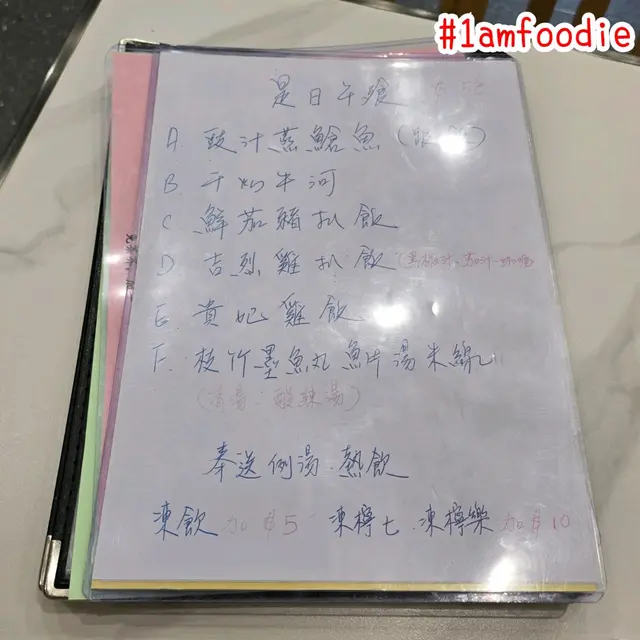 #1amfoodie
是日午飱
A. 豉汁蒸鯧魚(跟飯)
B. 干炒牛河
C. 鮮茄豬扒飯
D. 吉烈雞扒飯
E. 貴妃雞飯
F. 枝竹墨魚丸魚片湯米線
(清湯.酸辣湯)
奉送例湯.熱飲
凍飲 加$5 凍檸七.凍檸樂 加$10